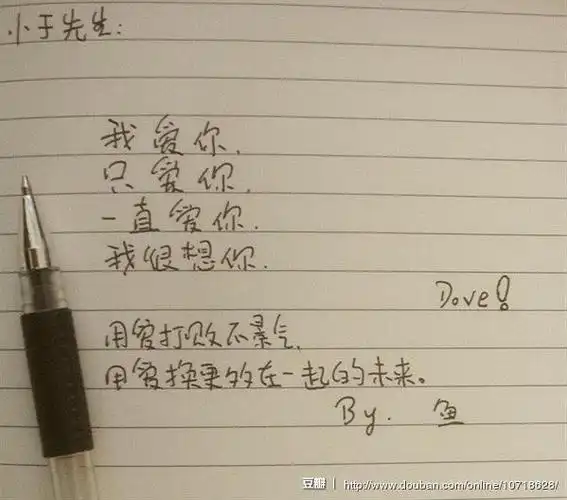 小于先生:
我爱你.
只爱你.
一直爱你.
我很想你.
Dove!
用爱打败不景气.
用爱换来的在一起的未来。
By. 鱼
豆瓣 | http://www.douban.com/online/10718628/